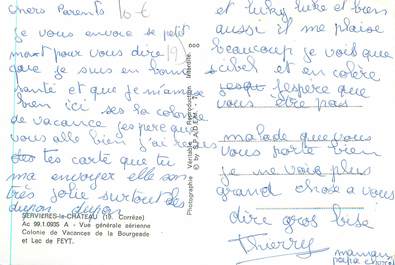 Chers Parents 10 €
je vous envoie se petit
mot pour vous dire (19)
que je suis en bonne
santé et que je m'amuse
bien ici ses la colonie
de vacance j'espère que
vous allé bien j'ai reçus
tes carte que tu
ma envoyer elle son
très jolie surtout des
dupon dupon
SERVIERES-le-CHÂTEAU (19. Corrèze)
Ac 99.1.0935 A - Vue générale aérienne
Colonie de Vacances de la Bourgeade
et Lac de FEYT.
Photographie Véritable - Reproduction Interdite
© by S.P.A.D.E.M.
et luky luke et bien
aussi il me plaise
beaucoup je vois que
sibel et en colère
j'espere que
vous etre pas
malade que vous
vous porte bien
je ne vois plus
grand chose a vous
dire gros bise
Thierry
maman
papa